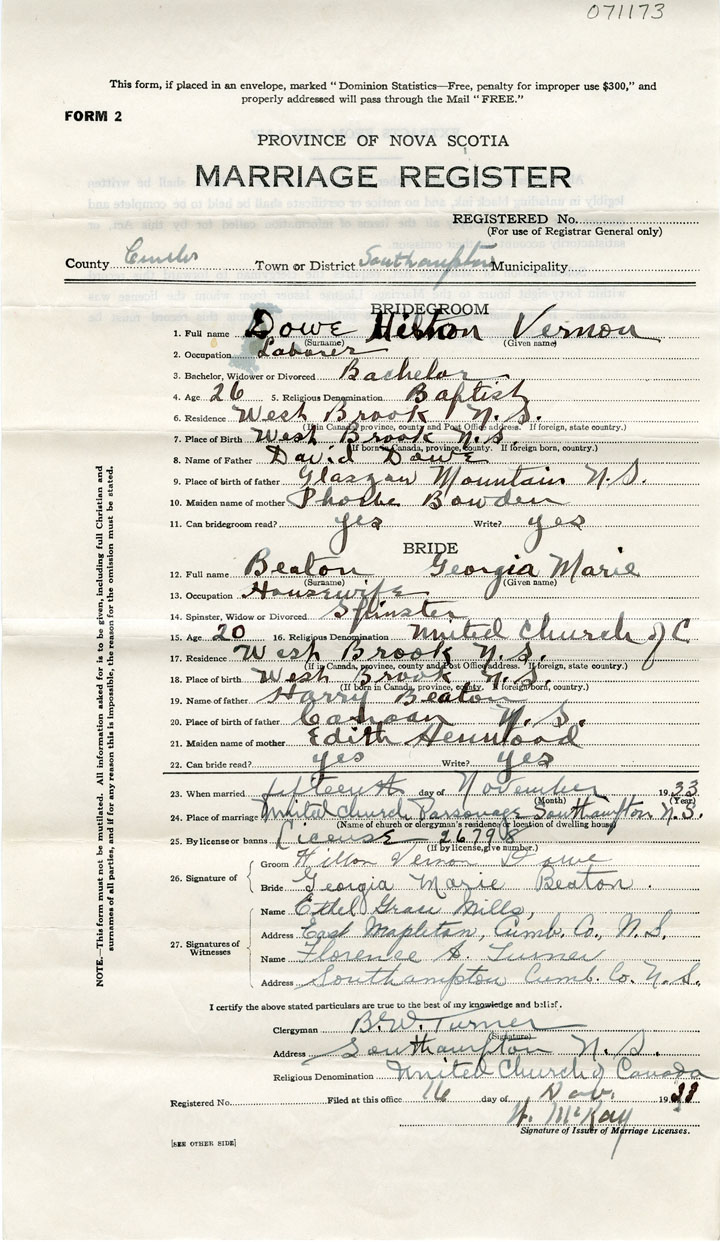 071173
This form, if placed in an envelope, marked "Dominion Statistics—Free, penalty for improper use $300," and
properly addressed will pass through the Mail "FREE."
FORM 2
PROVINCE OF NOVA SCOTIA
MARRIAGE REGISTER
REGISTERED No.
(For use of Registrar General only)
County Town or District Southampton Municipality
BRIDEGROOM
1. Full name Dowe Hilton Vernon
(Surname) (Given name)
2. Occupation Laborer
3. Bachelor, Widower or Divorced Bachelor
4. Age 26 5. Religious Denomination Baptist
6. Residence West Brook N.S.
(If in Canada, province, county and Post Office address. If foreign, state country.)
7. Place of Birth West Brook N.S.
(If born in Canada, province, county. If foreign born, country.)
8. Name of Father David Dowe
9. Place of birth of father Glasgow Mountain N.S.
10. Maiden name of mother Phoebe Bowden
11. Can bridegroom read? yes Write? yes
BRIDE
12. Full name Beaton Georgia Marie
(Surname) (Given name)
13. Occupation Housewife
14. Spinster, Widow or Divorced Spinster
15. Age 20 16. Religious Denomination United Church of C
17. Residence West Brook N.S.
(If in Canada, province, county and Post Office address. If foreign, state country.)
18. Place of birth West Brook N.S.
(If born in Canada, province, county. If foreign born, country.)
19. Name of father Harry Beaton
20. Place of birth of father N.S.
21. Maiden name of mother Edith Henwood
22. Can bride read? yes Write? yes
23. When married fifteenth day of November 1933
(Month) (Year)
24. Place of marriage United Church Parsonage Southampton N.S.
(Name of church or clergyman's residence or location of dwelling house)
25. By license or banns License 26798
(If by license, give number.)
26. Signature of
Groom Hilton Vernon Dowe
Bride Georgia Marie Beaton.
27. Signatures of Witnesses
Name Ethel Grace Mills,
Address East Mapleton, Cumb. Co., N.S.
Name Florence A. Turner
Address Southampton Cumb. Co. N.S.
I certify the above stated particulars are true to the best of my knowledge and belief.
Clergyman B.W. Turner
(Signature)
Address Southampton N.S.
Religious Denomination United Church of Canada
Registered No. Filed at this office 16 day of Nov. 1933
McKay
Signature of Issuer of Marriage Licenses.
[SEE OTHER SIDE]
NOTE.—This form must not be mutilated. All information asked for is to be given, including full Christian and
surnames of all parties, and if for any reason this is impossible, the reason for the omission must be stated.